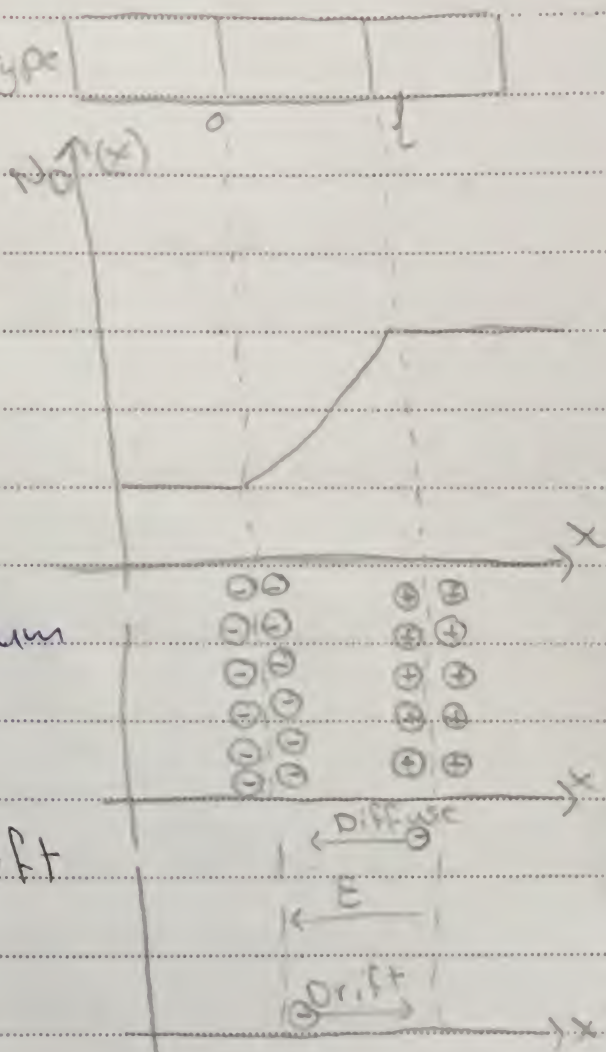 ype
0 l
N_D(x)
x
⊖⊖ ⊕⊕
um ⊖⊖ ⊕⊕
⊖⊖ ⊕⊕
⊖⊖ ⊕⊕
⊖⊖ ⊕⊕
⊖⊖
x
Diffuse
⊖
ft
E
⊖ Drift
x